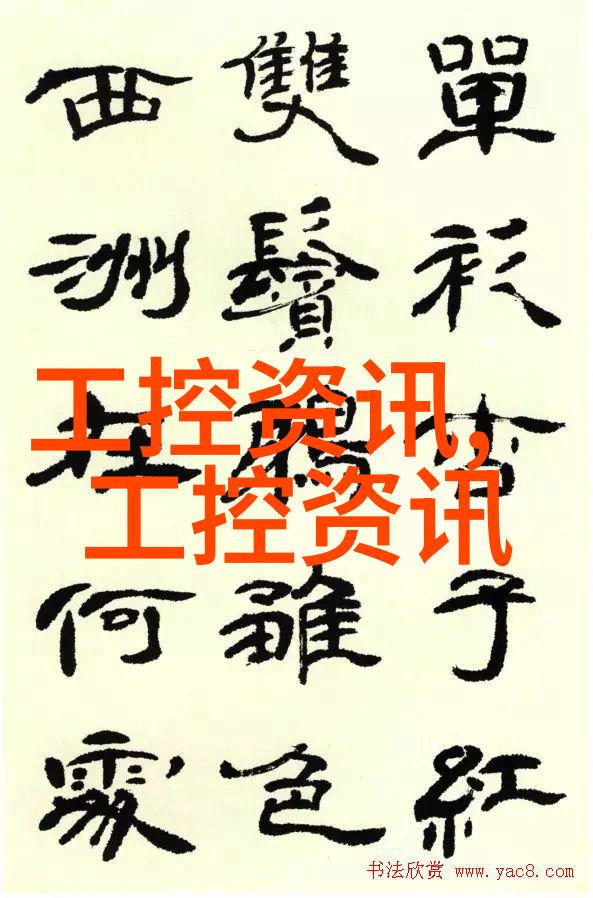 單衫杏子紅
雙鬢鴉雛色
西洲在何處
工控资讯,
工控资讯
书法欣赏 www.yac8.com